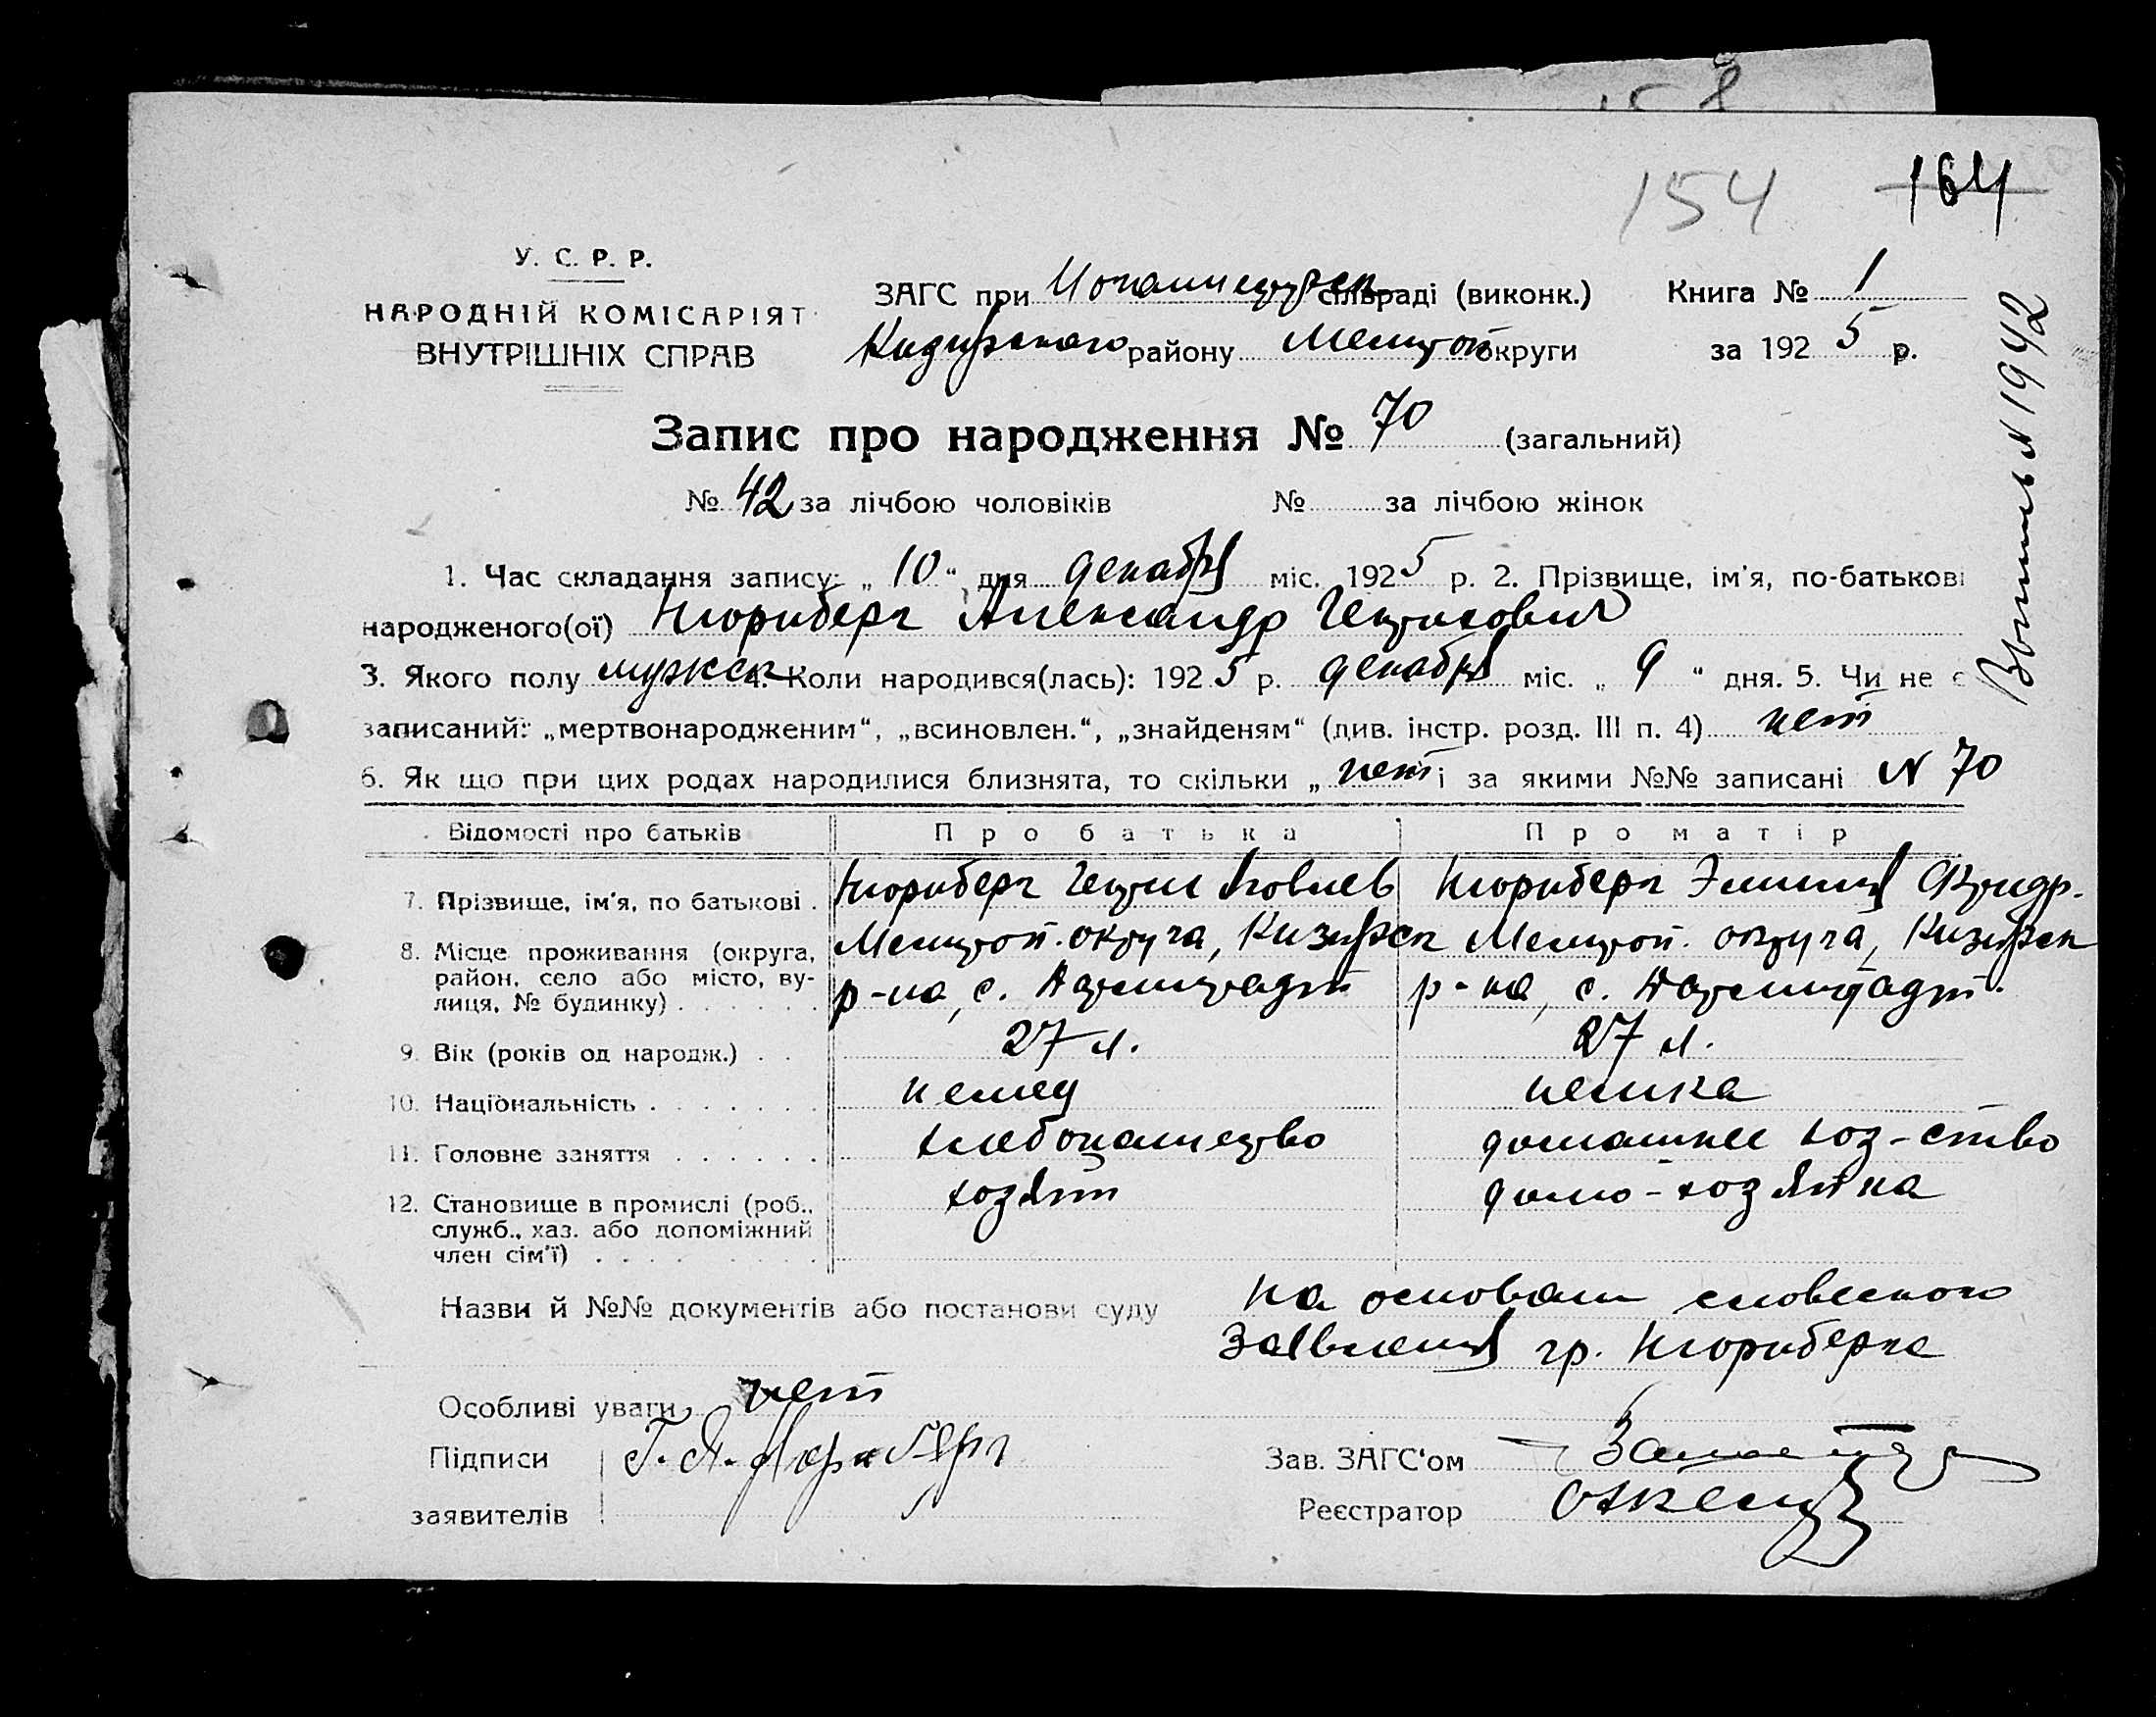 154 164
У. С. Р. Р.
НАРОДНІЙ КОМІСАРІЯТ
ВНУТРІШНІХ СПРАВ
ЗАГС при сільраді (виконк.) Книга № 1
району Мелитоп округи за 1925 р.
Запис про народження № 70 (загальний)
№ 42 за лічбою чоловіків № за лічбою жінок
1. Час складання запису: „10“ дня декабря міс. 1925 р. 2. Прізвище, ім'я, по-батькові
народженого(ої) Нюрнберг Александр Генрихович
3. Якого полу мужск 4. Коли народився(лась): 1925 р. декабря міс. „9“ дня. 5. Чи не є
записаний: „мертвонародженим“, „всиновлен.“, „знайденям“ (див. інстр. розд. III п. 4) нет
6. Як що при цих родах народилися близнята, то скільки „нет і за якими №№ записані N 70
Відомості про батьків Про батька Про матір
7. Прізвище, ім'я, по батькові . Нюрнберг Генрих Яковлев Нюрнберг Эмилия Фридр.
8. Місце проживання (округа, район, село або місто, вулиця, № будинку) Мелитоп. округа, Кизиярск Мелитоп. округа, Кизиярск
р-на, с. Дармштадт р-на, с. Дармштадт.
9. Вік (років од народж.) . . 27 л. 27 л.
10. Національність . . . . . . . немец немка
11. Головне заняття . . . . . . хлебопашество домашнее хоз-ство
12. Становище в промислі (роб., служб., хаз. або допоміжний член сім'ї) хозяин домо-хозяйка
Назви й №№ документів або постанови суду на основан словесного
Заявления гр. Нюрнберга
Особливі уваги нет
Підписи Г. Я. Нюрнберг Зав. ЗАГС'ом
заявителів Реєстратор
N 1942